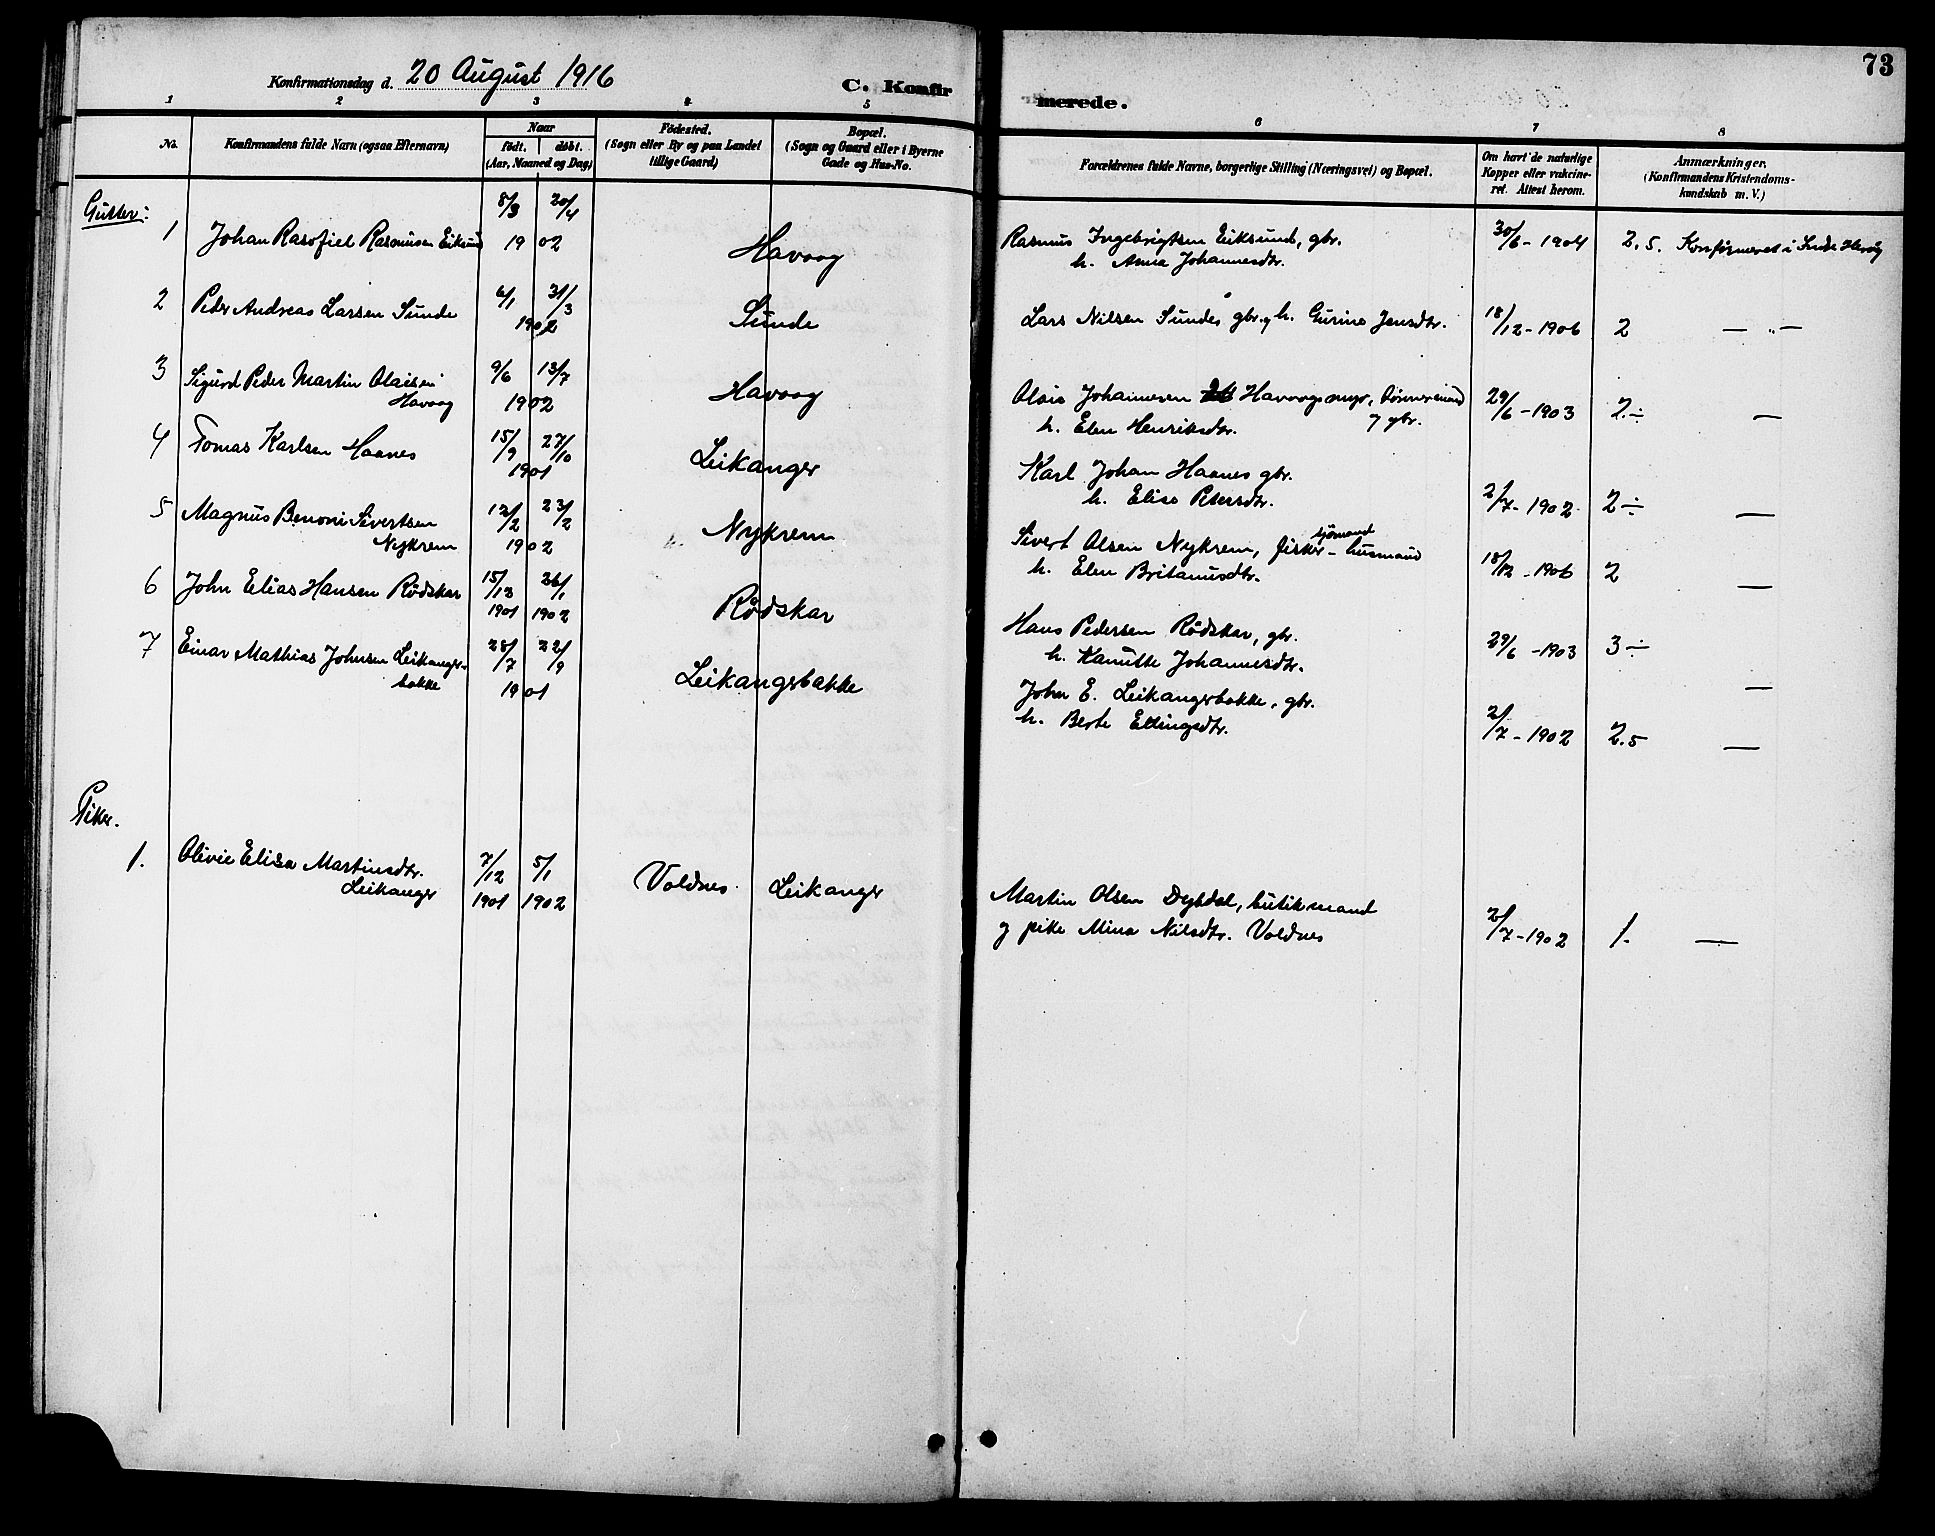 73
Konfirmationsdag d. 20 August 1916
C. Konfirmerede.
1 2 3 4 5 6 7 8
No.
Konfirmandens fulde Navn (ogsaa Efternavn)
Naar
födt. döbt.
(Aar, Maaned og Dag)
Födested.
(Sogn eller By og paa Landet
tillige Gaard)
Bopæl.
(Sogn og Gaard eller i Byerne
Gade og Hus-No.
Forældrenes fulde Navne, borgerlige Stilling (Næringsvei) og Bopæl.
Om havt de naturlige
Kopper eller vakcine-
ret. Attest herom.
Anmærkninger.
(Konfirmandens Kristendoms-
kundskab m. V.)
Gutter:
1 Johan Rasmusen Eiksund 8/3 20/4 1902 Havaag
Rasmus Ingebrigtsen Eiksund, gbr. 30/6-1904 2,5. Konfirmeret i Indre Heröy
h. Anna Johannesdtr.
2 Peder Andreas Larsen Sunde 6/1 31/3 1902 Sunde
Lars Nilsen Sunde, gbr. h. Gurine Jensdtr. 18/12-1906 2 — „ —
3 Sigurd Peder Martin Olaisen 9/6 13/7
Havaag 1902 Havaag
Olais Johannesen Havaagsmyr, 29/6-1903 2÷ —
h. Elen Henriksdtr. gbr.
4 Tomas Karlsen Haanes 15/9 27/10 1901 Leikanger
Karl Johan Haanes gbr.
h. Elise Petersdtr. 2/7-1902 2÷ —
5 Magnus Benoni Sivertsen 12/2 23/2
Nykrem 1902 Nykrem
sjömand
Sivert Olsen Nykrem, fisker - husmand
h. Elen Britanusdtr. 18/12-1906 2 —
6 John Elias Hansen Rödskar 15/13 26/1
1901 1902 Rödskar
Hans Pedersen Rödskar, gbr.
h. Kanutte Johannesdtr. 29/6-1903 3÷ —
7 Einar Mathias Johnsen Leikanger- 28/7 22/9
bakke 1901 Leikangerbakke
John E. Leikangerbakke, gbr.
h. Berte Ellingsdtr. 2/7-1902 2.5 —
Piker.
1. Olivie Elisa Martinsdtr. 7/12 5/1
Leikanger 1901 1902 Voldnes Leikanger
Martin Olsen Dybdal, butikmand
og pike Mina Nilsdtr. Voldnes 2/7-1902 1. —